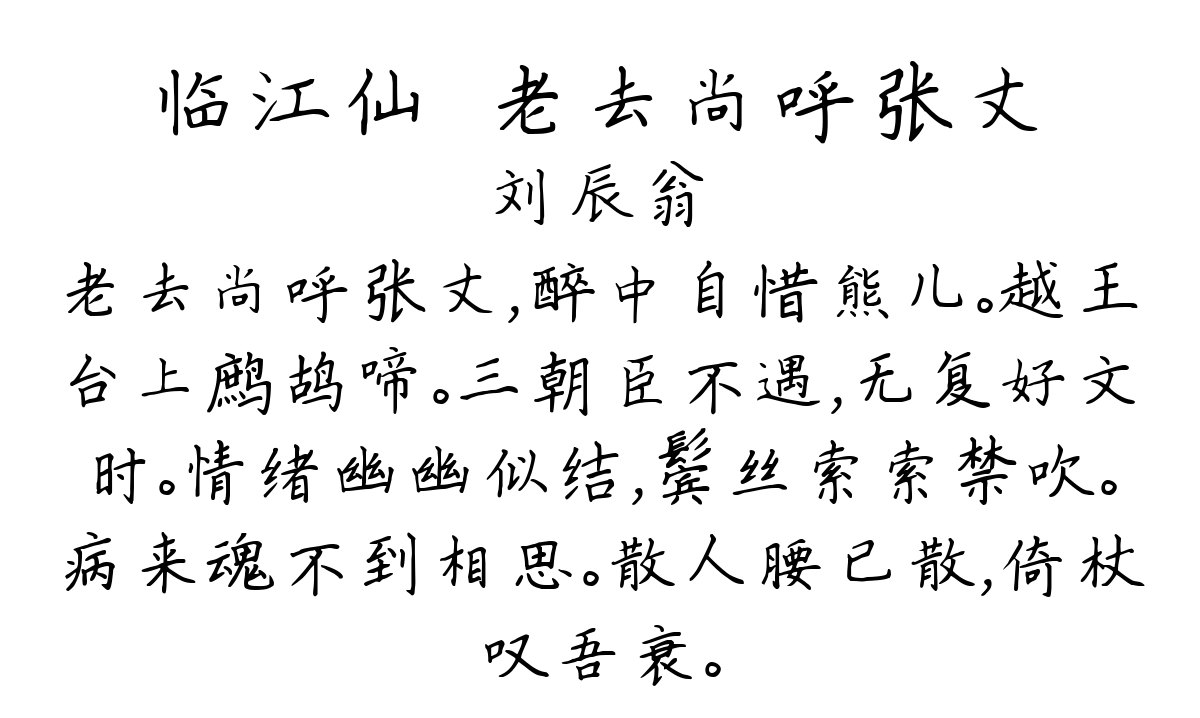 临江仙 老去尚呼张丈
刘辰翁
老去尚呼张丈,醉中自惜熊儿。越王
台上鹧鸪啼。三朝臣不遇,无复好文
时。情绪幽幽似结,鬓丝索索禁吹。
病来魂不到相思。散人腰已散,倚杖
叹吾衰。